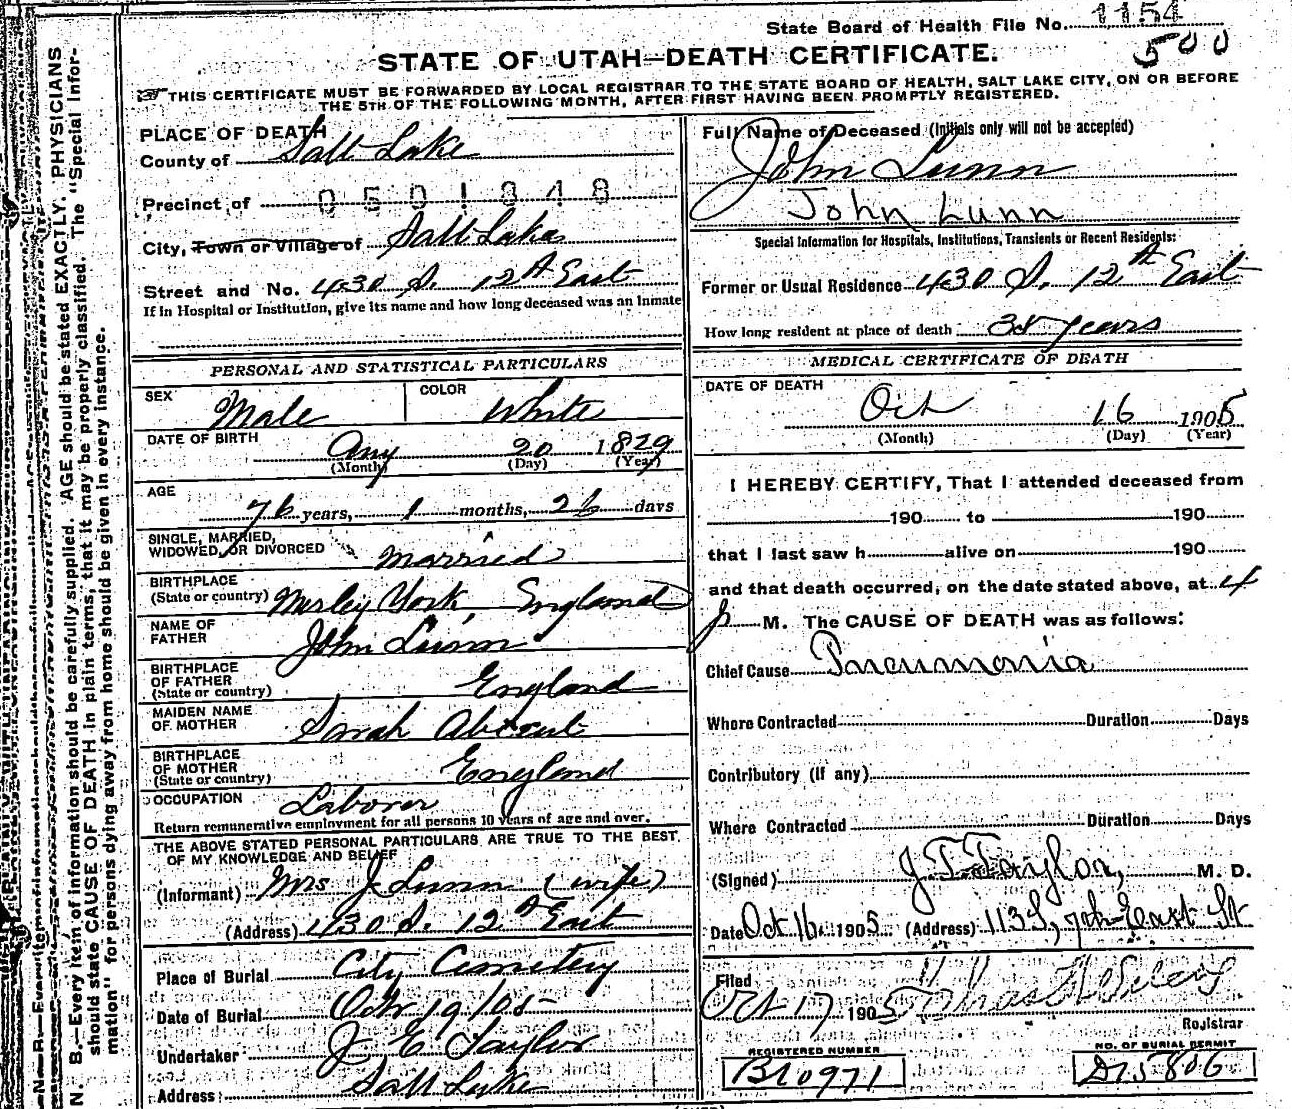 State Board of Health File No. 1154
500
STATE OF UTAH—DEATH CERTIFICATE.
THIS CERTIFICATE MUST BE FORWARDED BY LOCAL REGISTRAR TO THE STATE BOARD OF HEALTH, SALT LAKE CITY, ON OR BEFORE
THE 5TH OF THE FOLLOWING MONTH, AFTER FIRST HAVING BEEN PROMPTLY REGISTERED.
N. B.—Every item of information should be carefully supplied. AGE should be stated EXACTLY. PHYSICIANS
should state CAUSE OF DEATH in plain terms, that it may be properly classified. The "Special Infor-
mation" for persons dying away from home should be given in every instance.
PLACE OF DEATH
County of Salt Lake
Precinct of 0501848
City, Town or Village of Salt Lake
Street and No. 430 S. 12th East
If in Hospital or Institution, give its name and how long deceased was an inmate
PERSONAL AND STATISTICAL PARTICULARS
SEX Male
COLOR White
DATE OF BIRTH Aug 20 1829
(Month) (Day) (Year)
AGE
76 years, 1 months, 26 days
SINGLE, MARRIED,
WIDOWED, OR DIVORCED Married
BIRTHPLACE
(State or country) York, England
NAME OF
FATHER John Lunn
BIRTHPLACE
OF FATHER
(State or country) England
MAIDEN NAME
OF MOTHER Sarah
BIRTHPLACE
OF MOTHER
(State or country) England
OCCUPATION Laborer
Return remunerative employment for all persons 10 years of age and over.
THE ABOVE STATED PERSONAL PARTICULARS ARE TRUE TO THE BEST
OF MY KNOWLEDGE AND BELIEF
(Informant) Mrs J Lunn (wife)
(Address) 430 S. 12th East
Place of Burial City Cemetery
Date of Burial Oct 19/05
Undertaker J E Taylor
Address Salt Lake
Full Name of Deceased (Initials only will not be accepted)
John Lunn
John Lunn
Special Information for Hospitals, Institutions, Transients or Recent Residents:
Former or Usual Residence 430 S. 12th East
How long resident at place of death years
MEDICAL CERTIFICATE OF DEATH
DATE OF DEATH
Oct 16 1905
(Month) (Day) (Year)
I HEREBY CERTIFY, That I attended deceased from
190 to 190
that I last saw h alive on 190
and that death occurred, on the date stated above, at 4
P M. The CAUSE OF DEATH was as follows:
Chief Cause Pneumonia
Where Contracted Duration Days
Contributory (If any)
Where Contracted Duration Days
(Signed) J T Taylor, M. D.
Date Oct 16 1905 (Address) 113 S, 7th East St
Filed
Oct 17 1905
Registrar
REGISTERED NUMBER
B10971
NO. OF BURIAL PERMIT
D15806